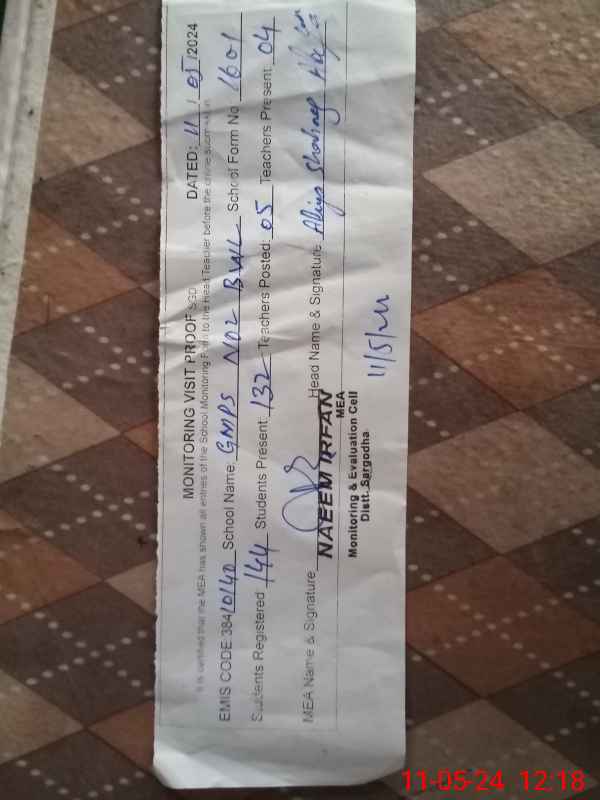 MONITORING VISIT PROOF SGD DATED: 11 / 05 /2024
It is certified that the MEA has shown all entries of the School Monitoring Form to the Head Teacher before the online submission.
EMIS CODE 38410140 School Name: GMPS NO2 BVIL School Form No. 1601
Students Registered 144 Students Present: 132 Teachers Posted: 05 Teachers Present: 04
MEA Name & Signature Head Name & Signature
NAEEM IRFAN
MEA
Monitoring & Evaluation Cell
Distt. Sargodha
11/5/24
11-05-24 12:18